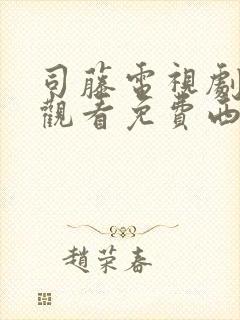 司藤電視劇
觀看免費西
趙荣春